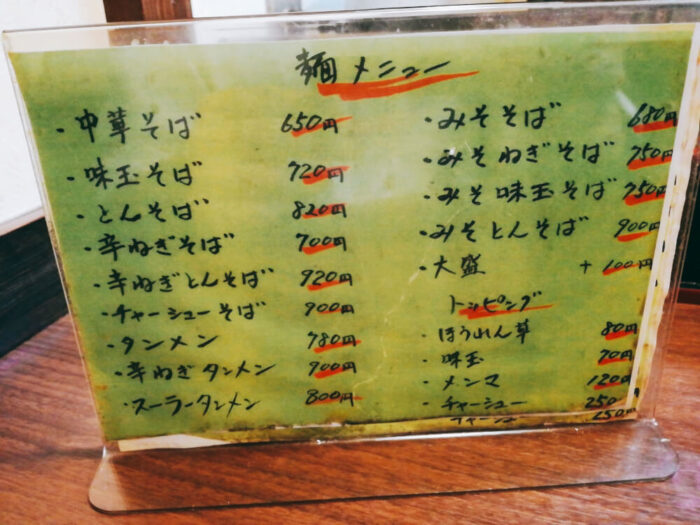 麺メニュー
・中華そば 650円
・味玉そば 720円
・とんそば 820円
・辛ねぎそば 700円
・辛ねぎとんそば 920円
・チャーシューそば 900円
・タンメン 780円
・辛ねぎタンメン 900円
・スーラータンメン 800円
・みそそば 680円
・みそねぎそば 750円
・みそ味玉そば 750円
・みそとんそば 900円
・大盛 +100円
トッピング
・ほうれん草 80円
・味玉 70円
・メンマ 120円
・チャーシュー 250
チャーシュー 250円